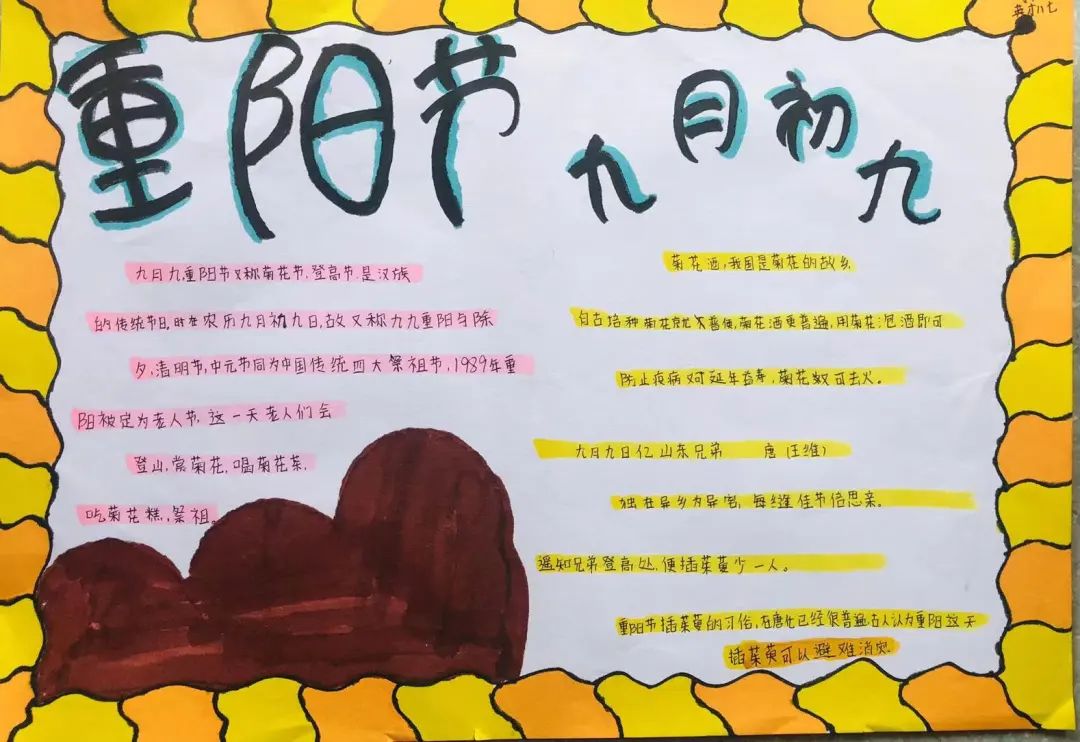 重阳节
九月初九
九月九重阳节又称菊花节.登高节.是汉族
的传统节日,时在农历九月初九日,故又称九九重阳与除
夕,清明节,中元节同为中国传统四大祭祖节,1989年重
阳被定为老人节,这一天老人们会
登山,赏菊花,喝菊花茶,
吃菊花糕,祭祖。
菊花酒,我国是菊花的故乡
自古培种菊花就 普便,菊花酒更普遍,用菊花泡酒即可
防止疾病 可延年益寿,菊花 可去火。
九月九日忆山东兄弟 唐(王维)
独在异乡为异客,每逢佳节倍思亲。
遥知兄弟登高处,便插茱萸少一人。
重阳节插茱萸的习俗,在唐代已经很普遍古人认为重阳这天
插茱萸可以避难消灾